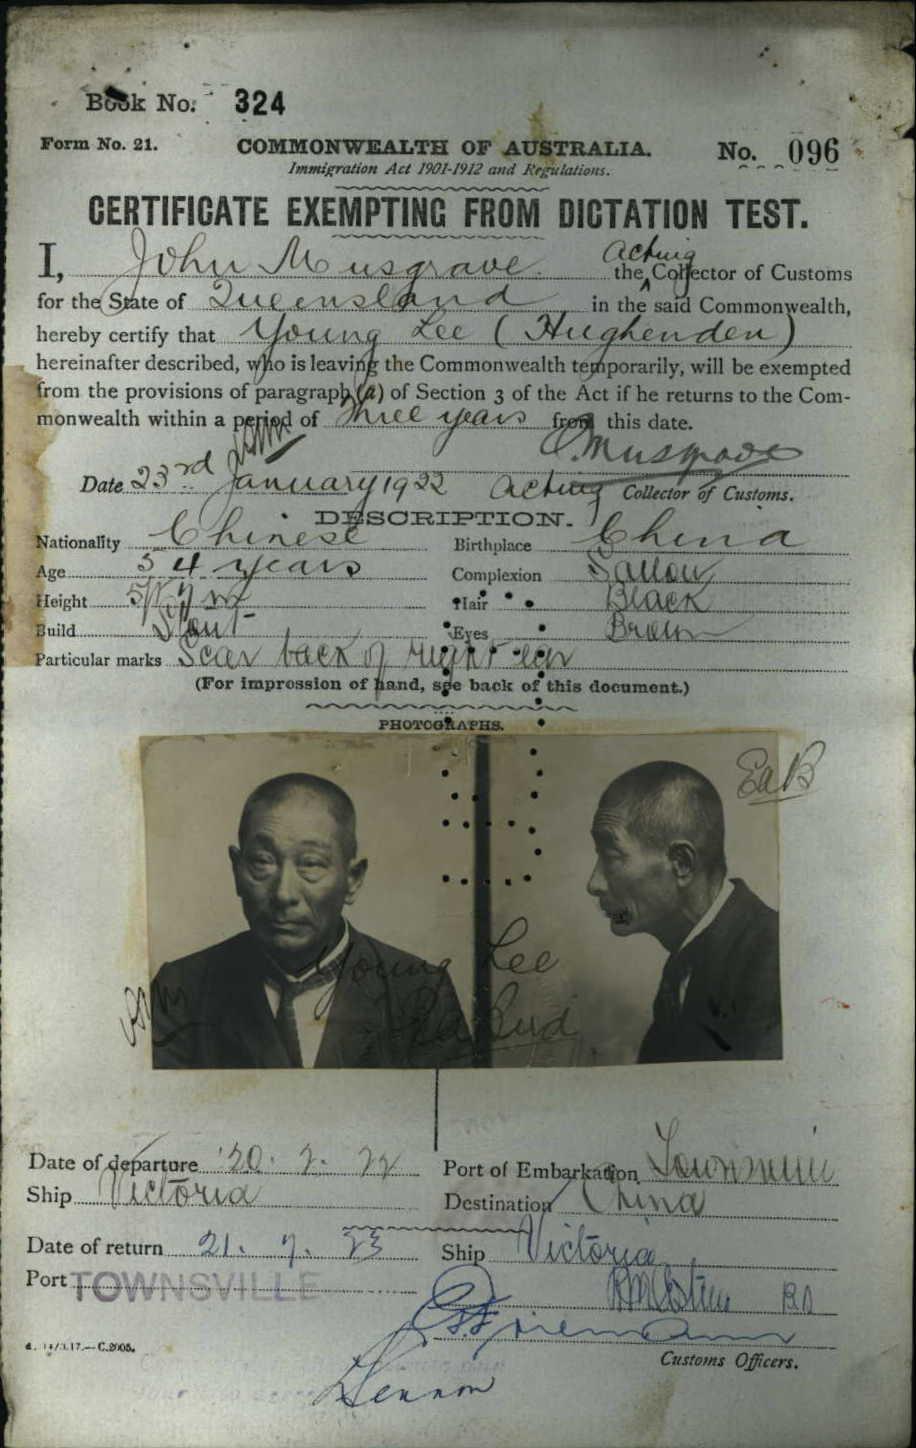 Book No. 324
Form No. 21. COMMONWEALTH OF AUSTRALIA. No. 096
Immigration Act 1901-1912 and Regulations.
CERTIFICATE EXEMPTING FROM DICTATION TEST.
I, John Musgrave the Acting Collector of Customs
for the State of Queensland in the said Commonwealth,
hereby certify that Young Lee (Hughenden)
hereinafter described, who is leaving the Commonwealth temporarily, will be exempted
from the provisions of paragraph (a) of Section 3 of the Act if he returns to the Com-
monwealth within a period of three years from this date.
Musgrave
Date 23rd January 1922 Acting Collector of Customs.
DESCRIPTION.
Nationality Chinese Birthplace China
Age 54 years Complexion Sallow
Height Hair Black
Build Stout Eyes Brown
Particular marks Scar back of right ear
(For impression of hand, see back of this document.)
PHOTOGRAPHS.
Young Lee
Date of departure 20. 2. 22 Port of Embarkation Townsville
Ship Victoria Destination China
Date of return 21. 7. 23 Ship Victoria
Port TOWNSVILLE
C.2005.
Customs Officers.
Lennon